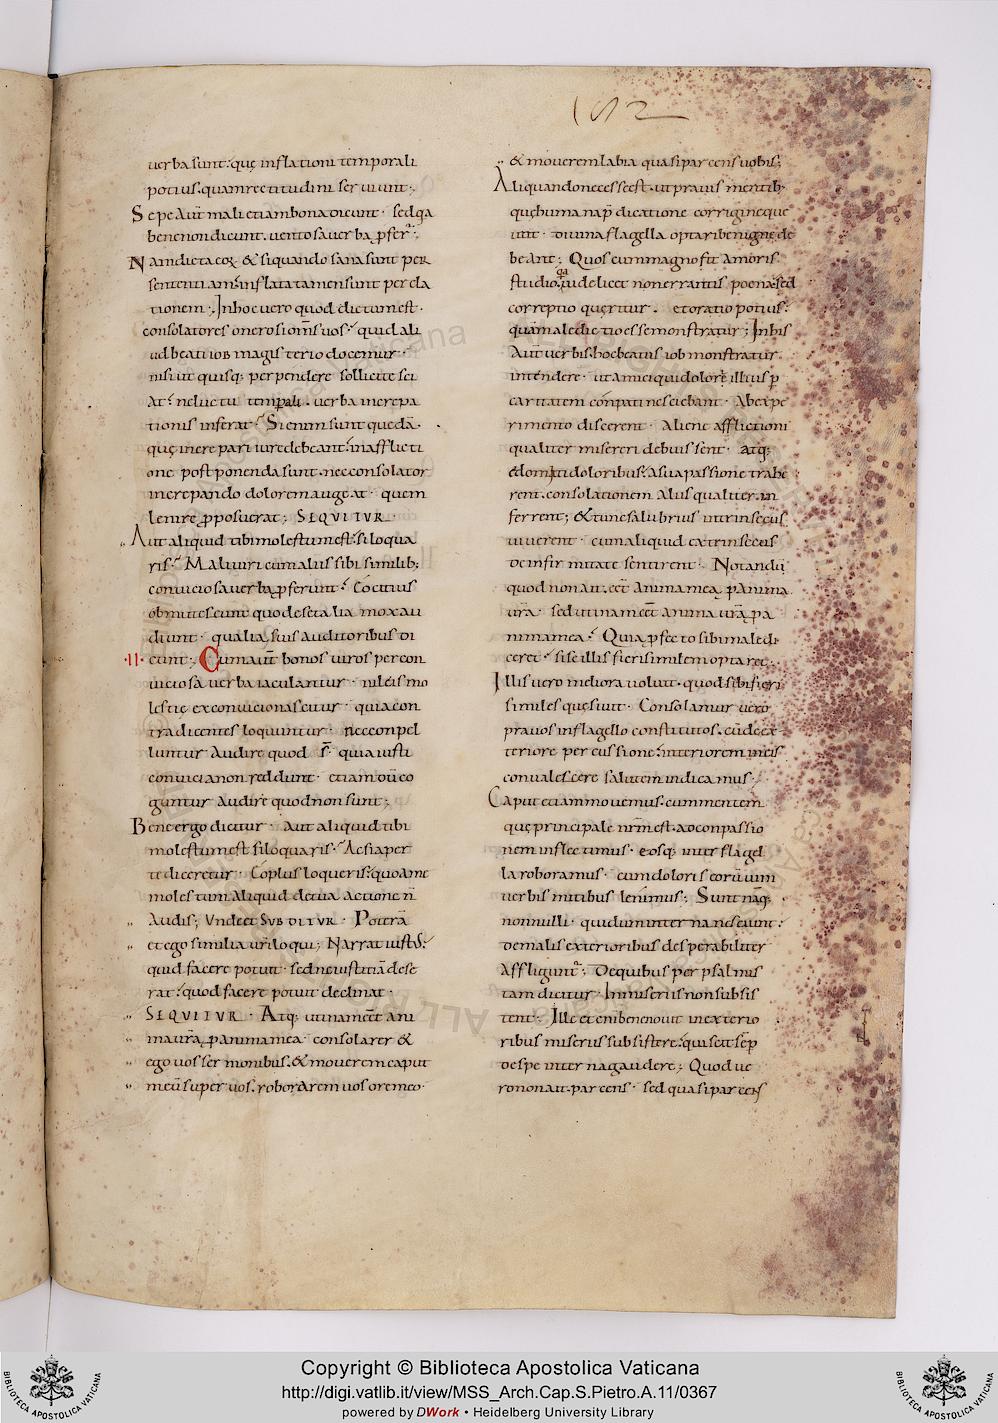 182
uerba sunt: quę inflationi temporali
potius. quam rectitudini seruiunt:.
Sepe aut mali etiam bona dicunt. sed qa
bene non dicunt. uentosa uerba pfert:.
Nam dicta eoꝝ & si quando sana sunt per
sententiam: inflata tamen sunt per ela
tionem:. In hoc uero quod dictum est.
consolatores onerosi oms uos: quid ali
ud beati iob magisterio docemur.
nisi ut quisq; perpendere sollicite sci
at: ne luctu temporali. uerba increpa
tionis inferat: Si enim sunt quedā.
quę increpari iure debeant: in afflicti
one postponenda sunt. nec consolator
increpando dolorem augeat. quem
lenire pposuerat; SEQUITUR
Aut aliquid tibi molestum est: si loqua
ris: Mali uiri cum aliis sibi similib;
conuiciosa uerba pferunt: Cocitius
obmutescunt quo de se talia mox au
diunt. qualia suis auditoribus di
·II· cunt:. Cum aut bonos uiros per con
uiciosa uerba iaculantur. nil eis mo
lestię ex conuicio nascitur. quia con
tradicentes loquuntur. nec conpel
luntur audire quod s̄. quia iusti
conuicia non reddunt. etiam cū co
guntur audire quod non sunt;
Bene ergo dicitur. Aut aliquid tibi
molestum est si loquaris: Ac si aper
te diceretur. Cōplus loqueris: quo a me
molestum aliquid de tua actione n̄
audis; Vnde et SUBDITUR. Poterā
et ego similia urī loqui; Narrat iustus:
quid facere potuit. sed ne iustitiā dese
rat: quod facere potuit declinat.
SEQUITUR. Atq; utinam eēt ani
ma urā p anima mea. consolarer &
ego uos sermonibus. & mouerem caput
meū super uos. roborarem uos ore meo.
& mouerem labia quasi parcens uobis;
Aliquando necesse est. ut prauis mentib;
quę humana pdicatione corrigi neque
unt. diuina flagella optari benigne de
beant; Quos cum magno fit amoris
studio: qa uidelicet non errantis poena. sed
correptio quęritur. et oratio potius:
quam maledictio esse monstratur; In his
aut uerbis. hoc beatus iob monstratur
intendere. ut amici qui dolorē illius p
caritatem conpati nesciebant. Ab expe
rimento discerent. Alienę afflictioni
qualiter misereri debuissent. atq;
edomiti doloribus: a sua passione trahe
rent. consolationem aliis qualiter in
ferrent; & tunc salubrius intrinsecus
uiuerent. cum aliquid extrinsecus
de infirmitate sentirent:. Notandū
quod non ait. eēt anima mea p anima
urā. sed utinam eēt anima urā p a
nima mea: Quia pfecto sibi maledi
ceret: si se illis fieri similem optaret;
Illis uero meliora uoluit. quod sibi fieri
similes quęsiuit. Consolamur uero
prauos in flagello constitutos. cū de ex
teriore percussione: interiorem in eis
conualescere salutem indicamus;
Caput etiam mouemus. cum mentem
quę principale nrm est. ad conpassio
nem inflectimus. eosq; inter flagel
la roboramus. cum doloris eorū uim
uerbis mitibus lenimus; Sunt nāq;
nonnulli. qui dum interna nesciunt:
de malis exterioribus desperabiliter
affligunt; De quibus per psalmis
tam dicitur. In miseriis non subsis
tent:. Ille etenim bene nouit in exterio
ribus miseriis subsistere: qui scit semp
de spe interna gaudere; Quod ue
ro non ait. parcens. sed quasi parcens
Copyright © Biblioteca Apostolica Vaticana
http://digi.vatlib.it/view/MSS_Arch.Cap.S.Pietro.A.11/0367
powered by DWork • Heidelberg University Library
BIBLIOTECA APOSTOLICA VATICANA
BIBLIOTECA APOSTOLICA VATICANA